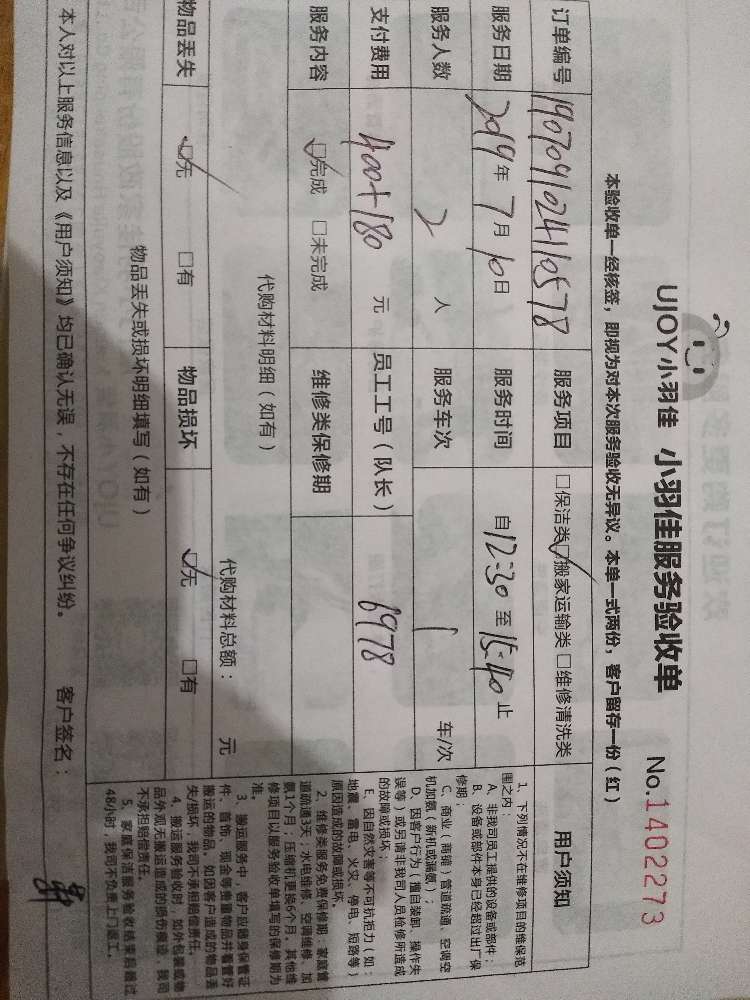 UJOY小羽佳 小羽佳服务验收单 No.1402273
本验收单一经核签，即视为对本次服务验收无异议。本单一式两份，客户留存一份（红）
订单编号 19070910241110578 服务项目 □保洁类 ☑搬家运输类 □维修清洗类
服务日期 2019年7月10日 服务时间 自12:30至15:40止
服务人数 2人 服务车次 1 车/次
支付费用 400+180 元 员工工号（队长） 6978
服务内容 ☑完成 □未完成 维修类保修期
代购材料明细（如有） 代购材料总额： 元
物品丢失 ☑无 □有 物品损坏 ☑无 □有
物品丢失或损坏明细填写（如有）
本人对以上服务信息以及《用户须知》均已确认无误，不存在任何争议纠纷。 客户签名：
用户须知
1、下列情况不在维修项目的维保范
围之内：
A、非我司员工提供的设备或部件；
B、设备或部件本身已经超过出厂保
修期；
C、商业（商铺）管道疏通、空调空
机加氨（新机或漏氨）；
D、因客户行为（擅自装卸、操作失
误等）或另请非我司人员检修所造成
的故障或损坏；
E、因自然灾害等不可抗拒力（如：
地震、雷电、火灾、停电、短路等）
原因造成的故障或损坏。
2、维修类服务免费保修期：家庭管
道疏通3天；水电维修、空调维修、加
氨1个月；压缩机更换6个月。其他维
修项目以服务验收单填写的保修期为
准。
3、搬运服务中，客户应随身保管证
件、首饰、现金等贵重物品并看管好
搬运的物品。如因客户造成的物品丢
失/损坏，我司不承担赔偿责任。
4、搬运服务验收时，如外包装或物
品外观无搬运造成的损伤痕迹，我司
不承担赔偿责任。
5、家庭保洁服务验收结束后超过
48小时，我司不负责上门返工。